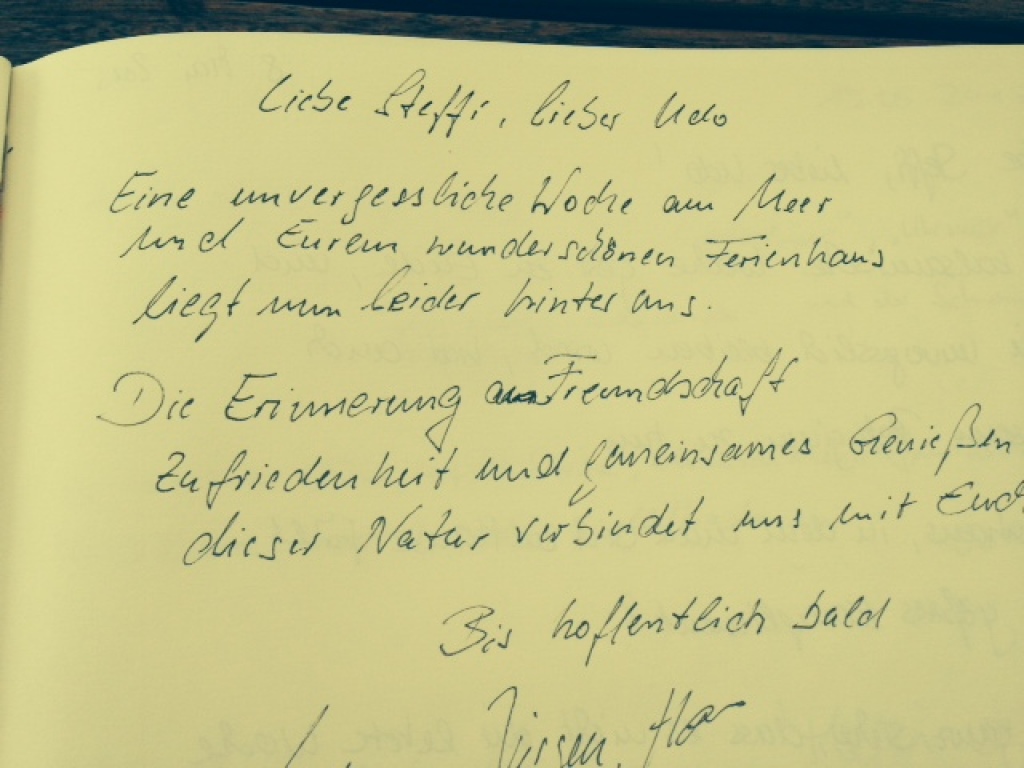 Liebe Steffi, lieber Udo
Eine unvergessliche Woche am Meer
und Eurem wunderschönen Ferienhaus
liegt nun leider hinter uns.
Die Erinnerung an Freundschaft
Zufriedenheit und gemeinsames Genießen
dieser Natur verbindet uns mit Euch
Bis hoffentlich bald
Jürgen,